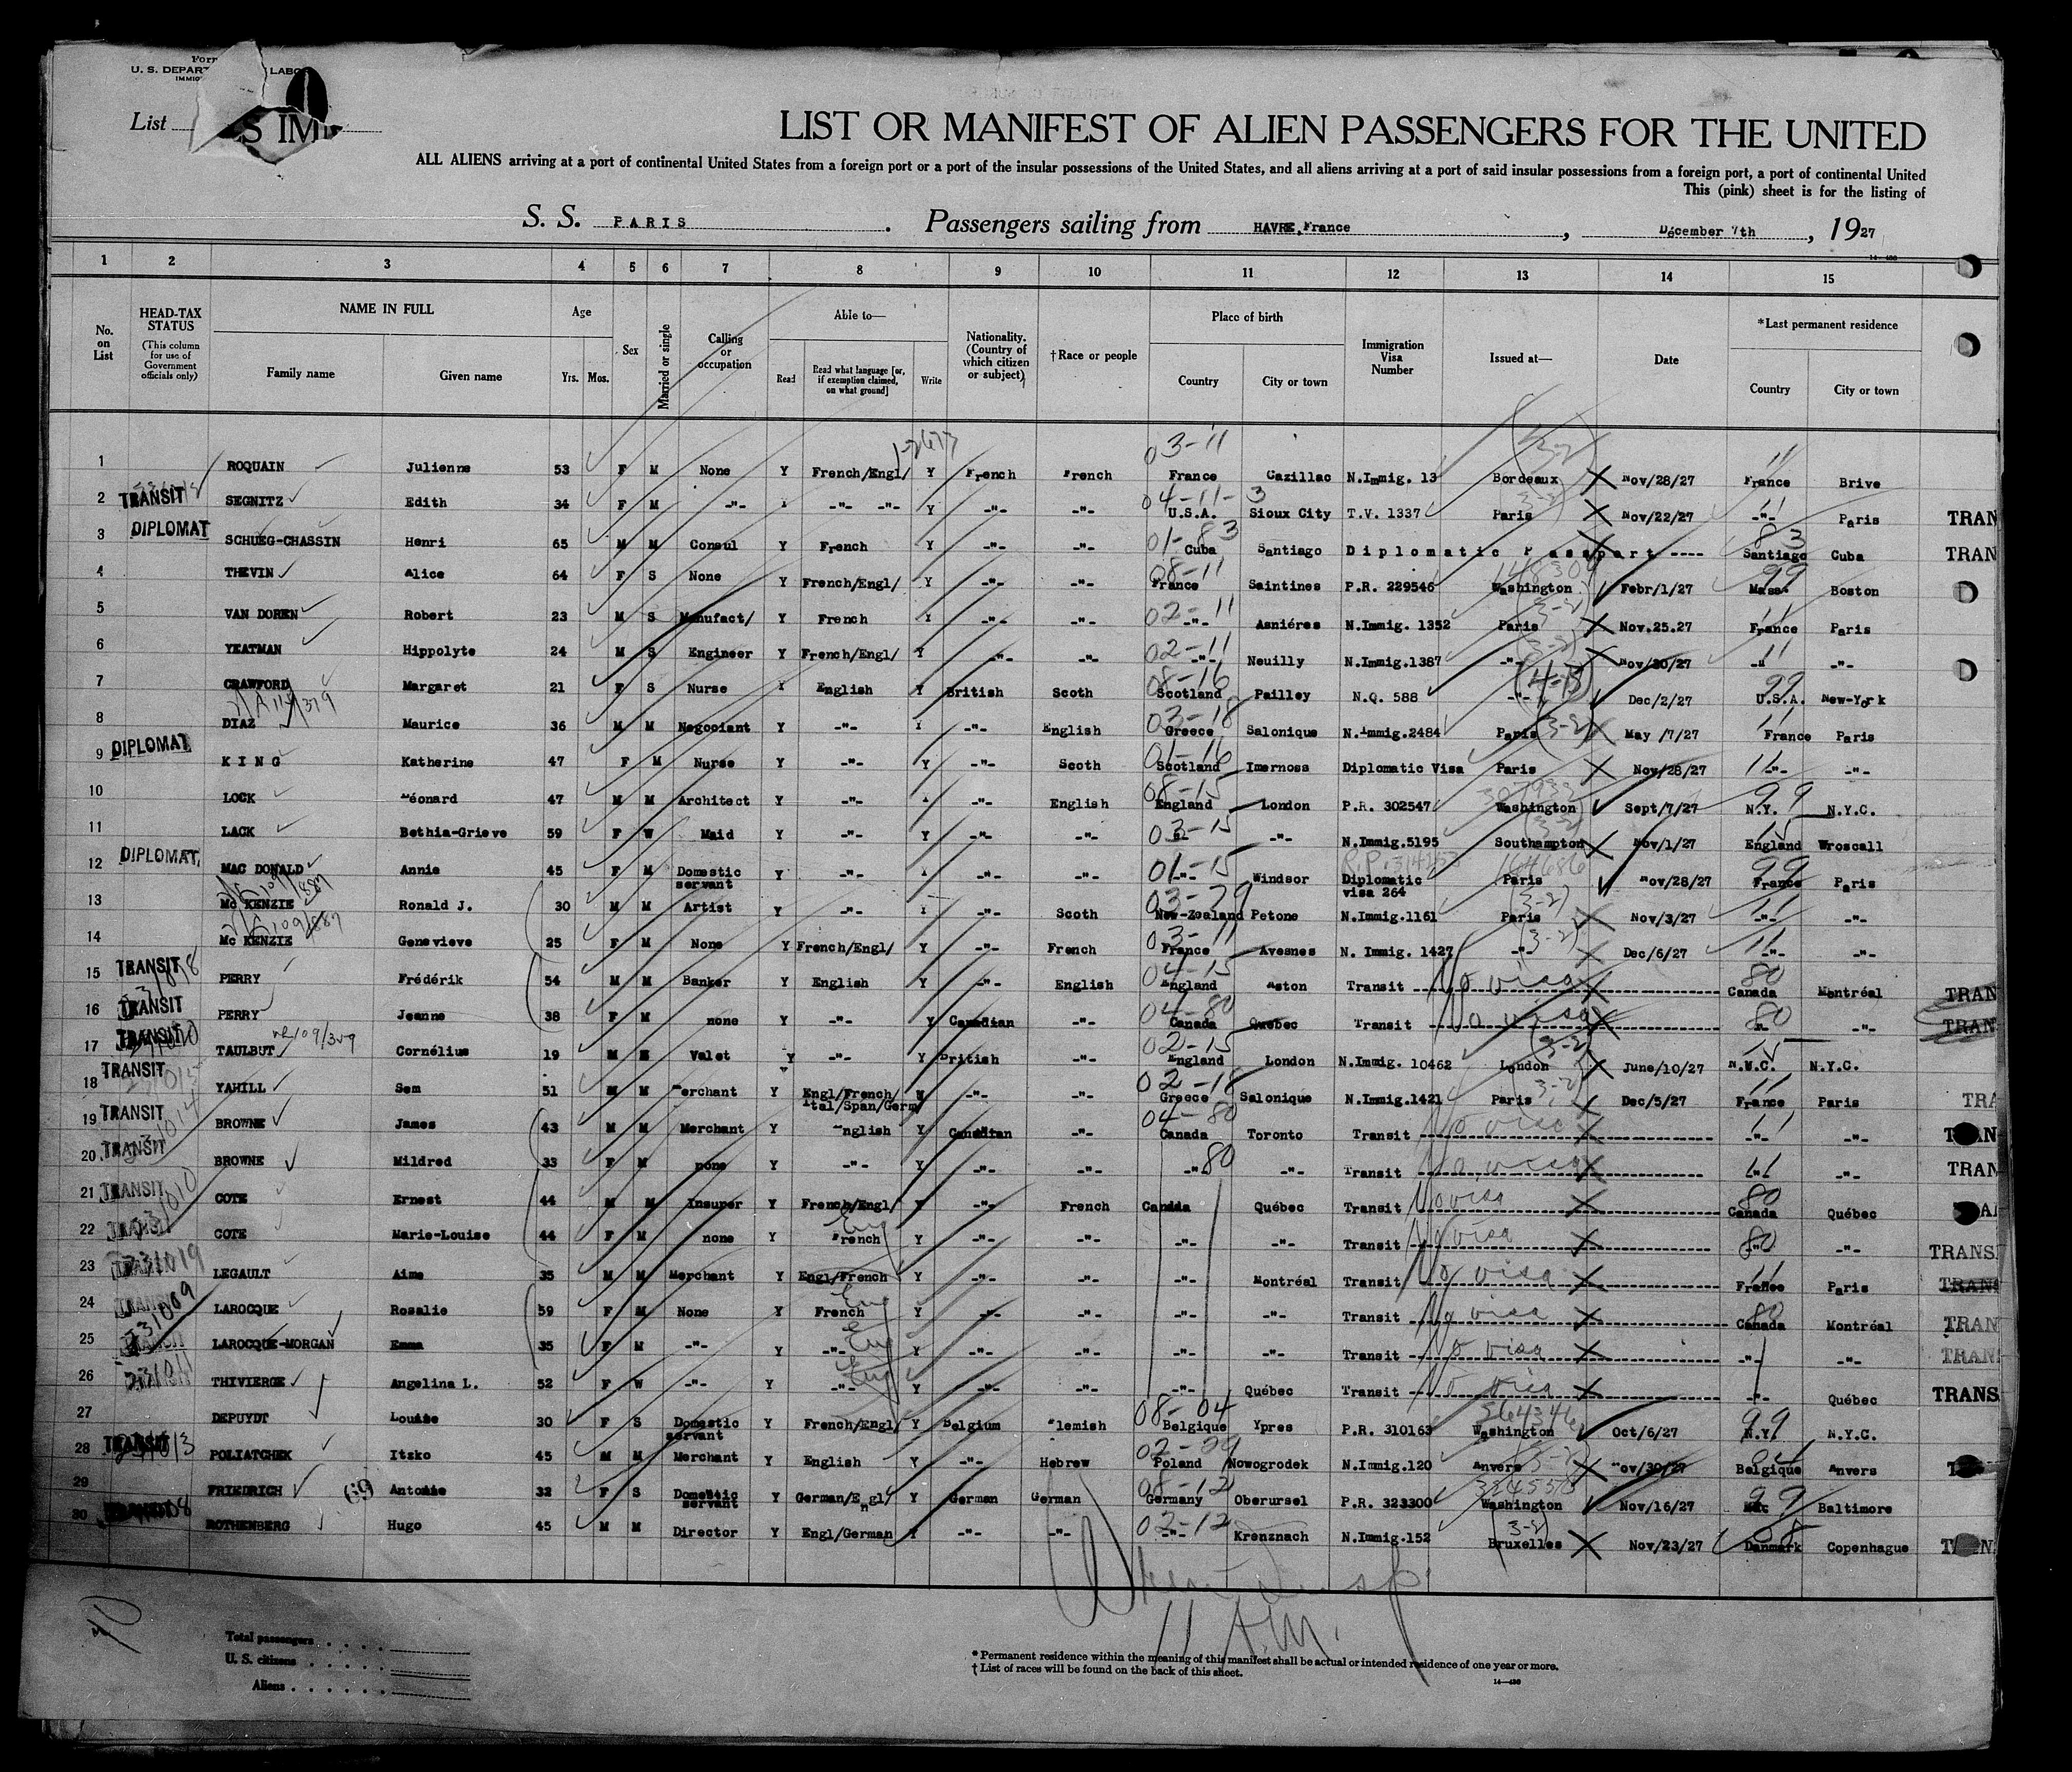 Form
U. S. DEPART LABO
IMMIG
List S IM
LIST OR MANIFEST OF ALIEN PASSENGERS FOR THE UNITED
ALL ALIENS arriving at a port of continental United States from a foreign port or a port of the insular possessions of the United States, and all aliens arriving at a port of said insular possessions from a foreign port, a port of continental United
This (pink) sheet is for the listing of
S. S. PARIS. Passengers sailing from HAVRE,France, December 7th, 1927
14-430
1 2 3 4 5 6 7 8 9 10 11 12 13 14 15
No. on List
HEAD-TAX STATUS (This column for use of Government officials only)
NAME IN FULL
Family name Given name
Age
Yrs. Mos.
Sex
Married or single
Calling or occupation
Able to—
Read
Read what language [or, if exemption claimed, on what ground]
Write
Nationality. (Country of which citizen or subject)
†Race or people
Place of birth
Country City or town
Immigration Visa Number
Issued at—
Date
*Last permanent residence
Country City or town
1 ROQUAIN Julienne 53 F M None Y French/Engl/ Y French French 03-11 France Cazillac N.Immig. 13 Bordeaux (3-2) Nov/28/27 11 France Brive
2 TRANSIT SEGNITZ Edith 34 F M -"- -"- -"- Y -"- -"- 04-11-3 U.S.A. Sioux City T.V. 1337 Paris (3-2) Nov/22/27 11 -"- Paris TRAN
3 DIPLOMAT SCHUEG-CHASSIN Henri 65 M M Consul Y French Y -"- -"- 01-83 Cuba Santiago Diplomatic Passport ---- 83 Santiago Cuba TRAN
4 THEVIN Alice 64 F S None Y French/Engl/ Y -"- -"- 08-11 France Saintines P.R. 229546 Washington Febr/1/27 99 Mass. Boston
5 VAN DOREN Robert 23 M S Manufact/ Y French Y -"- -"- 02-11 -"- Asniéres N.Immig. 1352 Paris (3-2) Nov.25.27 11 France Paris
6 YEATMAN Hippolyte 24 M S Engineer Y French/Engl/ Y -"- -"- 02-11 -"- Neuilly N.Immig.1387 -"- (3-2) Nov/30/27 11 -" -"-
7 CRAWFORD Margaret 21 F S Nurse Y English Y British Scoth 08-16 Scotland Pailley N.Q. 588 -"- (4-B) Dec/2/27 99 U.S.A. New-York
8 DIAZ Maurice 36 M M Negociant Y -"- Y -"- English 03-18 Greece Salonique N.Immig.2484 Paris (3-2) May /7/27 11 France Paris
9 DIPLOMAT KING Katherine 47 F M Nurse Y -"- Y -"- Scoth 01-16 Scotland Imernoss Diplomatic Visa Paris Nov/28/27 11 -"- -"-
10 LOCK Léonard 47 M M Architect Y -"- -"- English 08-15 England London P.R. 302547 Washington Sept/7/27 99 N.Y. N.Y.C.
11 LACK Bethia-Grieve 59 F W Maid Y -"- Y -"- -"- 03-15 -"- N.Immig.5195 Southampton (3-2) Nov/1/27 15 England Wroscall
12 DIPLOMAT. MAC DONALD Annie 45 F M Domestic servant Y -"- -"- -"- 01-15 -"- Windsor Diplomatic visa 264 Paris 164686 Nov/28/27 99 France Paris
13 Mc KENZIE Ronald J. 30 M M Artist Y -"- -"- Scoth 03-29 New-Zealand Petone N.Immig.1161 Paris (3-2) Nov/3/27 11 -"- -"-
14 Mc KENZIE Genevieve 25 F M None Y French/Engl/ Y -"- French 03-11 France Avesnes N. Immig. 1427 -"- (3-2) Dec/6/27 11 -"- -"-
15 TRANSIT PERRY Frédérik 54 M M Banker Y English Y -"- English 04-15 England Aston Transit No visa 80 Canada Montréal TRAN
16 TRANSIT PERRY Jeanne 38 F M none Y -"- Y Canadian -"- 04-80 Canada Québec Transit No visa 80 -"- -"- TRAN
17 TRANSIT TAULBUT Cornélius 19 M Valet Y -"- Y British -"- 02-15 England London N.Immig. 10462 London (3-2) June/10/27 N.Y.C. N.Y.C.
18 TRANSIT YAHILL Sem 51 M M Merchant Y Engl/French/ Ital/Span/Germ/ -"- -"- 02-18 Greece Salonique N.Immig.1421 Paris 3-2 Dec/5/27 11 France Paris TRA
19 TRANSIT BROWNE James 43 M M Merchant Y English Y Canadian -"- 04-80 Canada Toronto Transit No visa 11 -"- -"- TRAN
20 TRANSIT BROWNE Mildred 33 F M none Y -"- Y -"- -"- 80 -"- -"- Transit No visa 11 -"- -"- TRAN
21 TRANSIT COTE Ernest 44 M M Insurer Y French/Engl/ Y -"- French Canada Québec Transit No visa 80 Canada Québec
22 TRANSIT COTE Marie-Louise 44 F M none Y French Eng Y -"- -"- -"- -"- Transit No visa 80 -"- -"- TRANS
23 LEGAULT Aime 35 M M Merchant Y Engl/French Y -"- -"- -"- Montréal Transit No visa 11 France Paris TRAN
24 LAROCQUE Rosalie 59 F M None Y French Eng Y -"- -"- -"- -"- Transit No visa 80 Canada Montréal TRAN
25 LAROCQUE-MORGAN Emma 35 F M -"- Y -"- Eng Y -"- -"- -"- -"- Transit No visa -"- -"- TRAN
26 THIVIERGE Angelina L. 52 F W -"- Y -"- Eng Y -"- -"- -"- Québec Transit No visa -"- Québec TRANS
27 DEPUYDT Louise 30 F S Domestic servant Y French/Engl/ Y Belgium Flemish 08-04 Belgique Ypres P.R. 310163 Washington Oct/6/27 99 N.Y. N.Y.C.
28 TRANSIT POLIATCHEK Itzko 45 M M Merchant Y English Y -"- Hebrew Poland Nowogrodek N.Immig.120 Anvers Nov/30/27 04 Belgique Anvers
29 FRIEDRICH 69 Antonie 32 F S Domestic servant Y German/Engl/ Y German German 08-12 Germany Oberursel P.R. 323300 Washington Nov/16/27 99 Baltimore
30 ROTHENBERG Hugo 45 M M Director Y Engl/German Y -"- -"- 02-12 -"- Krenznach N.Immig.152 Bruxelles (3-2) Nov/23/27 58 Danmark Copenhague
11 A.M.
Total passengers . . . .
U. S. citizens . . . . .
Aliens . . . . . .
* Permanent residence within the meaning of this manifest shall be actual or intended residence of one year or more.
† List of races will be found on the back of this sheet.
14—430